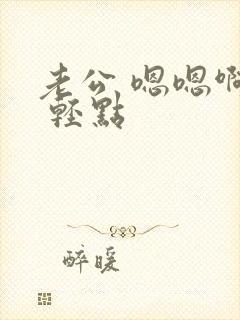 老公 嗯嗯啊
輕點
醉暖